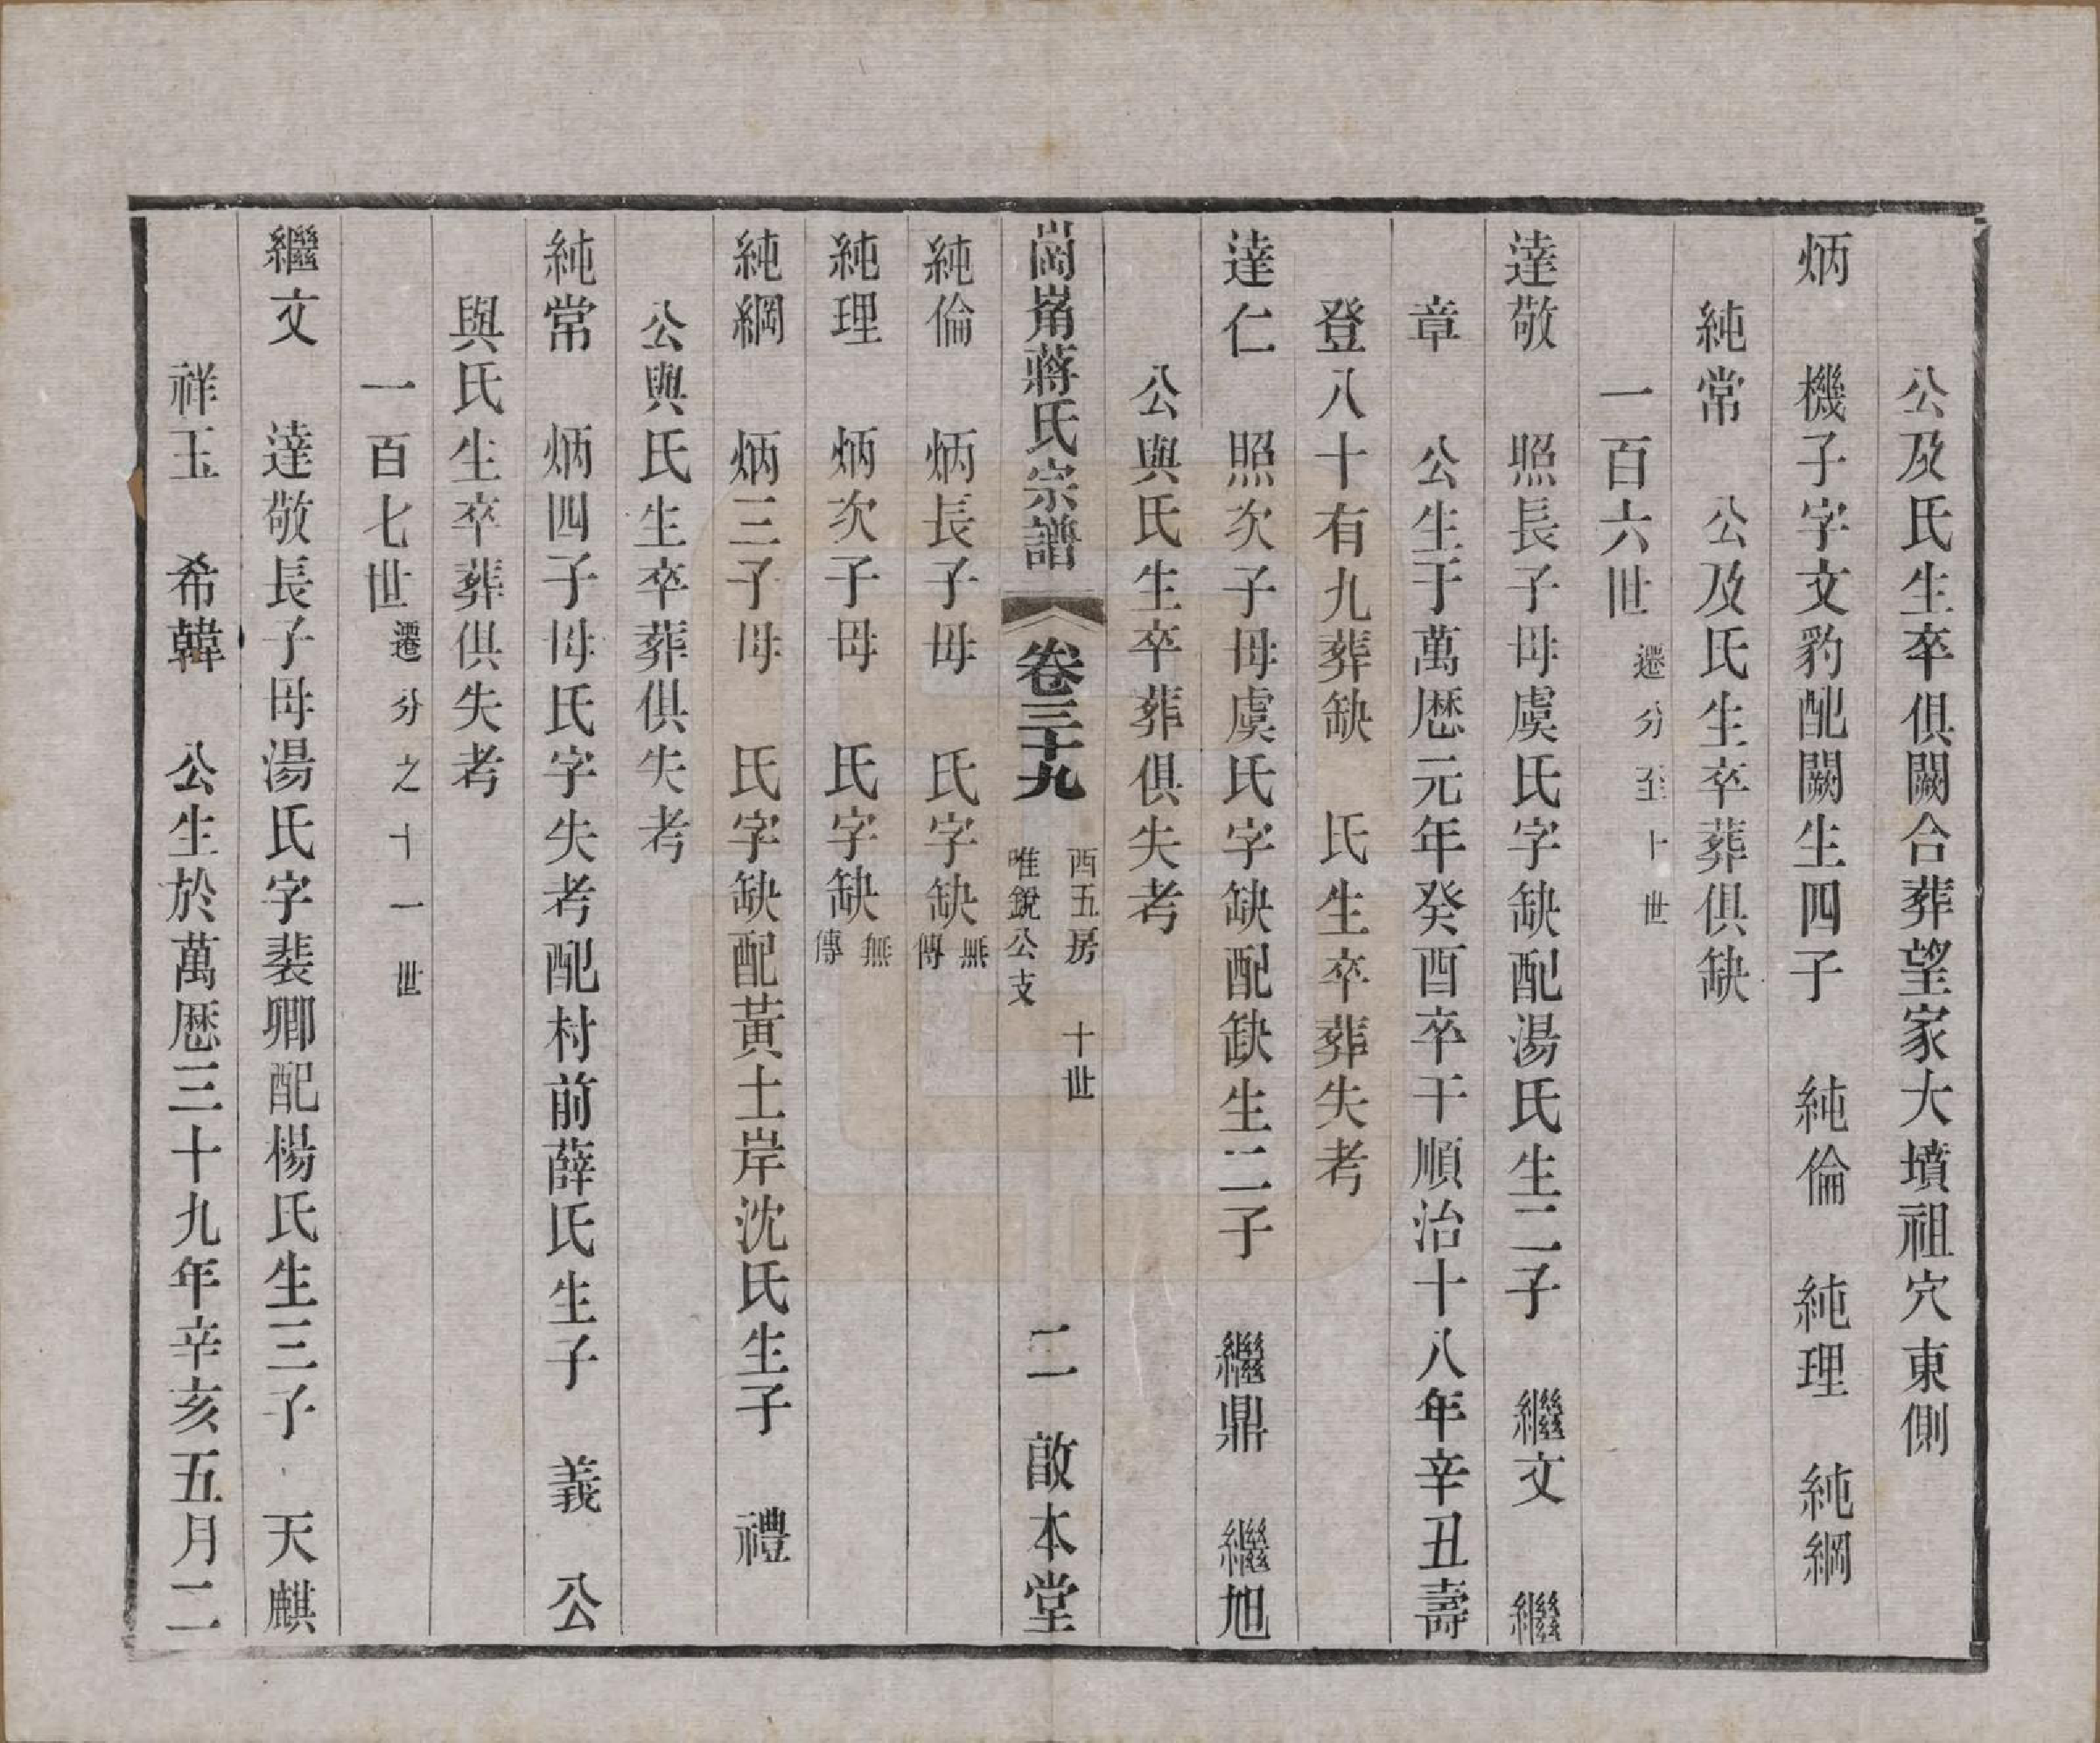 公及氏生卒俱闕合葬望家大墳祖穴東側
炳　機子字文豹配闕生四子　純倫　純理　純綱
純常　公及氏生卒葬俱缺
一百六世遷分至十世
達敬　照長子母虞氏字缺配湯氏生二子　繼文　繼
章　公生于萬厯元年癸酉卒于順治十八年辛丑壽
登八十有九葬缺　氏生卒葬失考
達仁　照次子母虞氏字缺配缺生二子　繼鼎　繼旭
公與氏生卒葬俱失考
崗㟵蔣氏宗譜　卷三十九　西五房　十世　唯銳公支　二　敿本堂
純倫　炳長子母　氏字缺無傳
純理　炳次子母　氏字缺無傳
純綱　炳三子母　氏字缺配黃土岸沈氏生子　禮
公與氏生卒葬俱失考
純常　炳四子母氏字失考配村前薛氏生子　義　公
與氏生卒葬俱失考
一百七世遷分之十一世
繼文　達敬長子母湯氏字裴卿配楊氏生三子　天麒
祥玉　希韓　公生於萬厯三十九年辛亥五月二